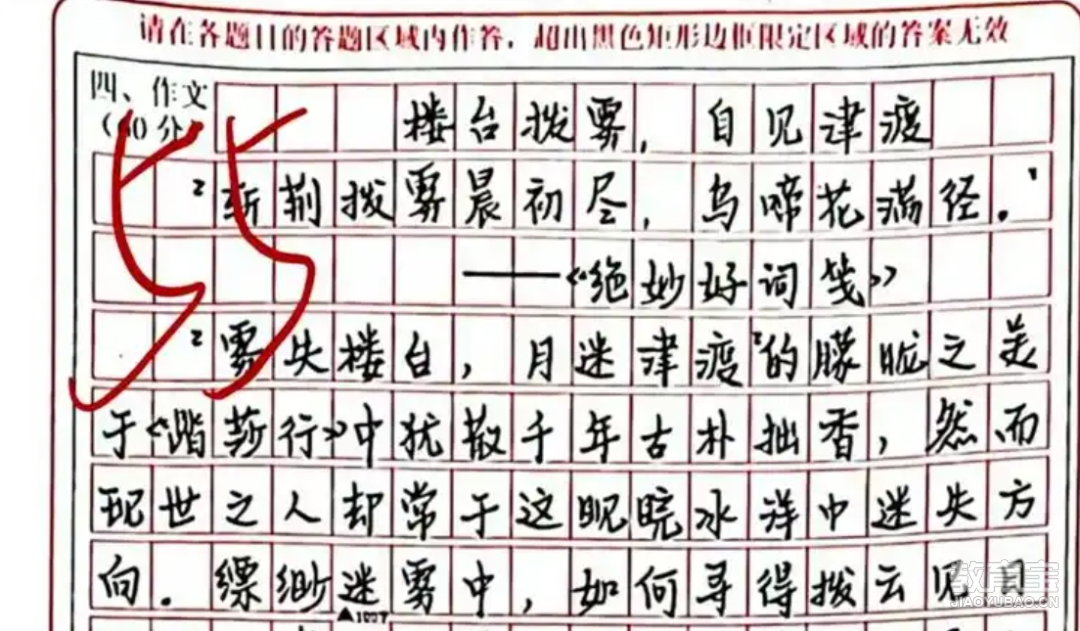 请在各题目的答题区域内作答，超出黑色矩形边框限定区域的答案无效
四、作文
（60分）
55
楼台拨雾，自见津渡
“斩荆拨雾晨初尽，鸟啼花满径。”
——《绝妙好词笺》
“雾失楼台，月迷津渡”的朦胧之美
于《踏莎行》中犹散千年古朴拙香，然而
现世之人却常于这眼晓水洋中迷失方
向。缥缈迷雾中，如何寻得拨云见日
教育宝
JIAOYUBAO.CN